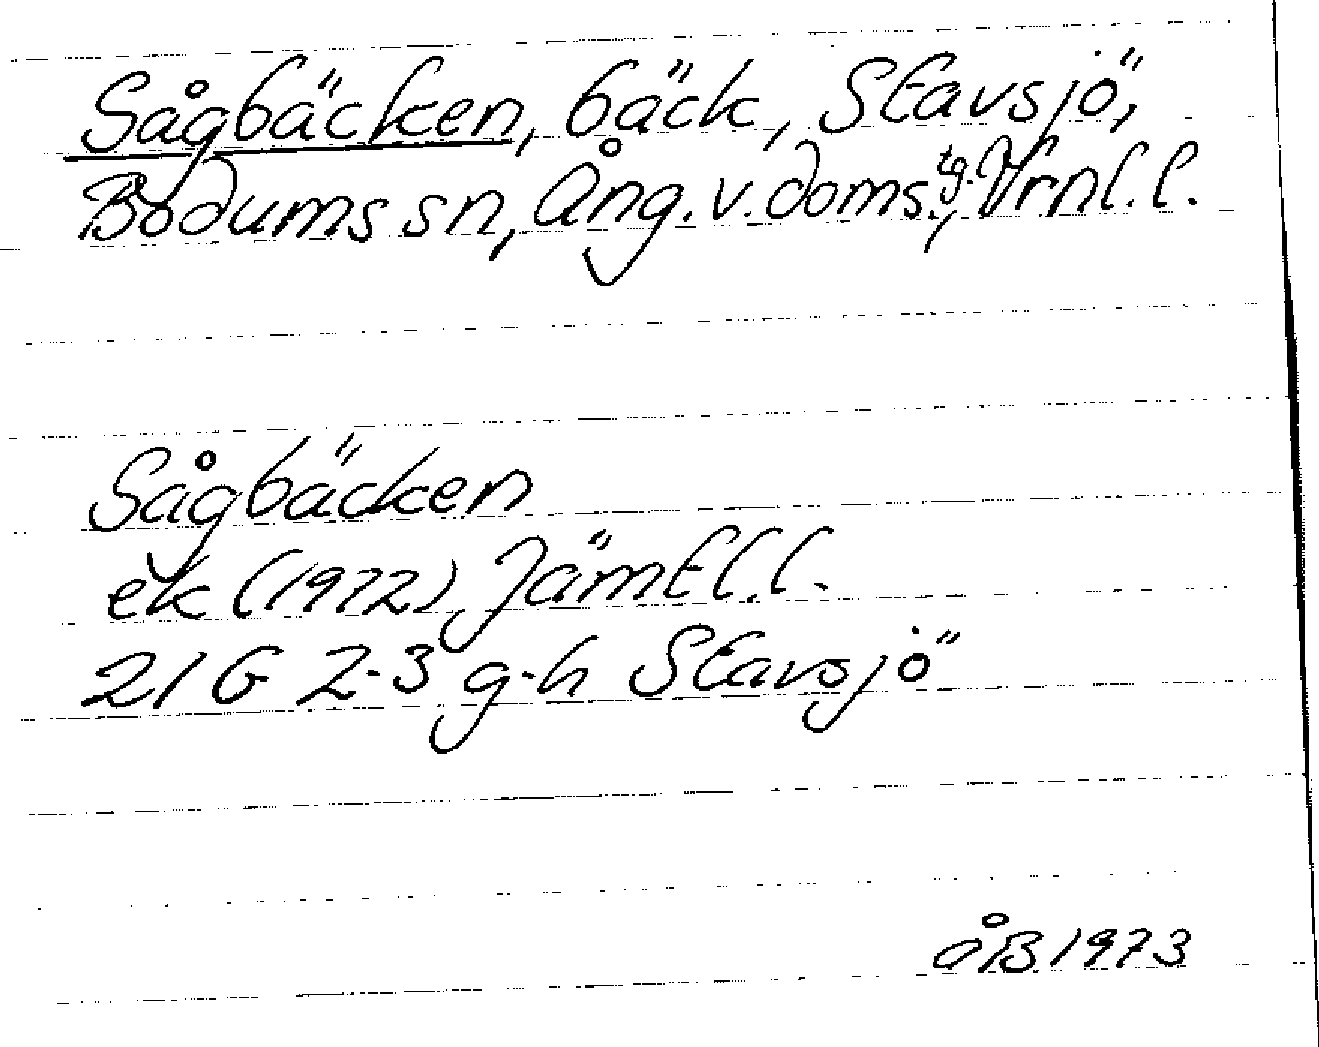 Sågbäcken, bäck, Stavsjö,
Bodums sn, Ång. v. doms.tg., Vrnl. l.
Sågbäcken
ek (1972) Jämtl. l.
21 G 2-3 g-h Stavsjö
ÅB 1973